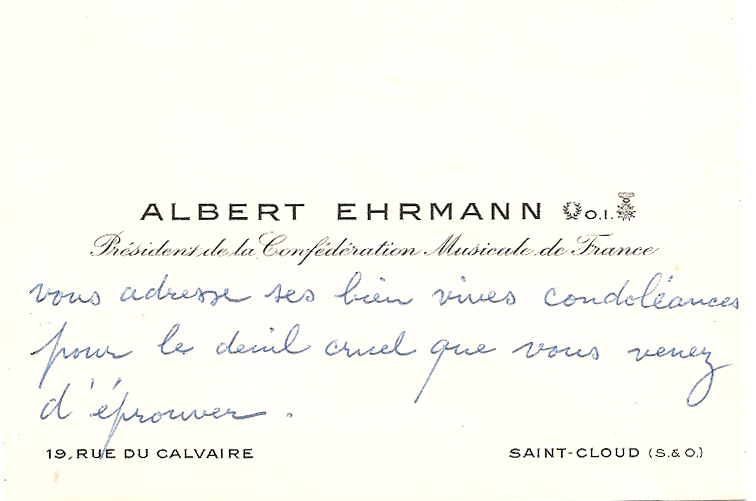 ALBERT EHRMANN O.I.
Président de la Confédération Musicale de France
vous adresse ses bien vives condoléances
pour le deuil cruel que vous venez
d'éprouver.
19, RUE DU CALVAIRE SAINT-CLOUD (S.&O.)